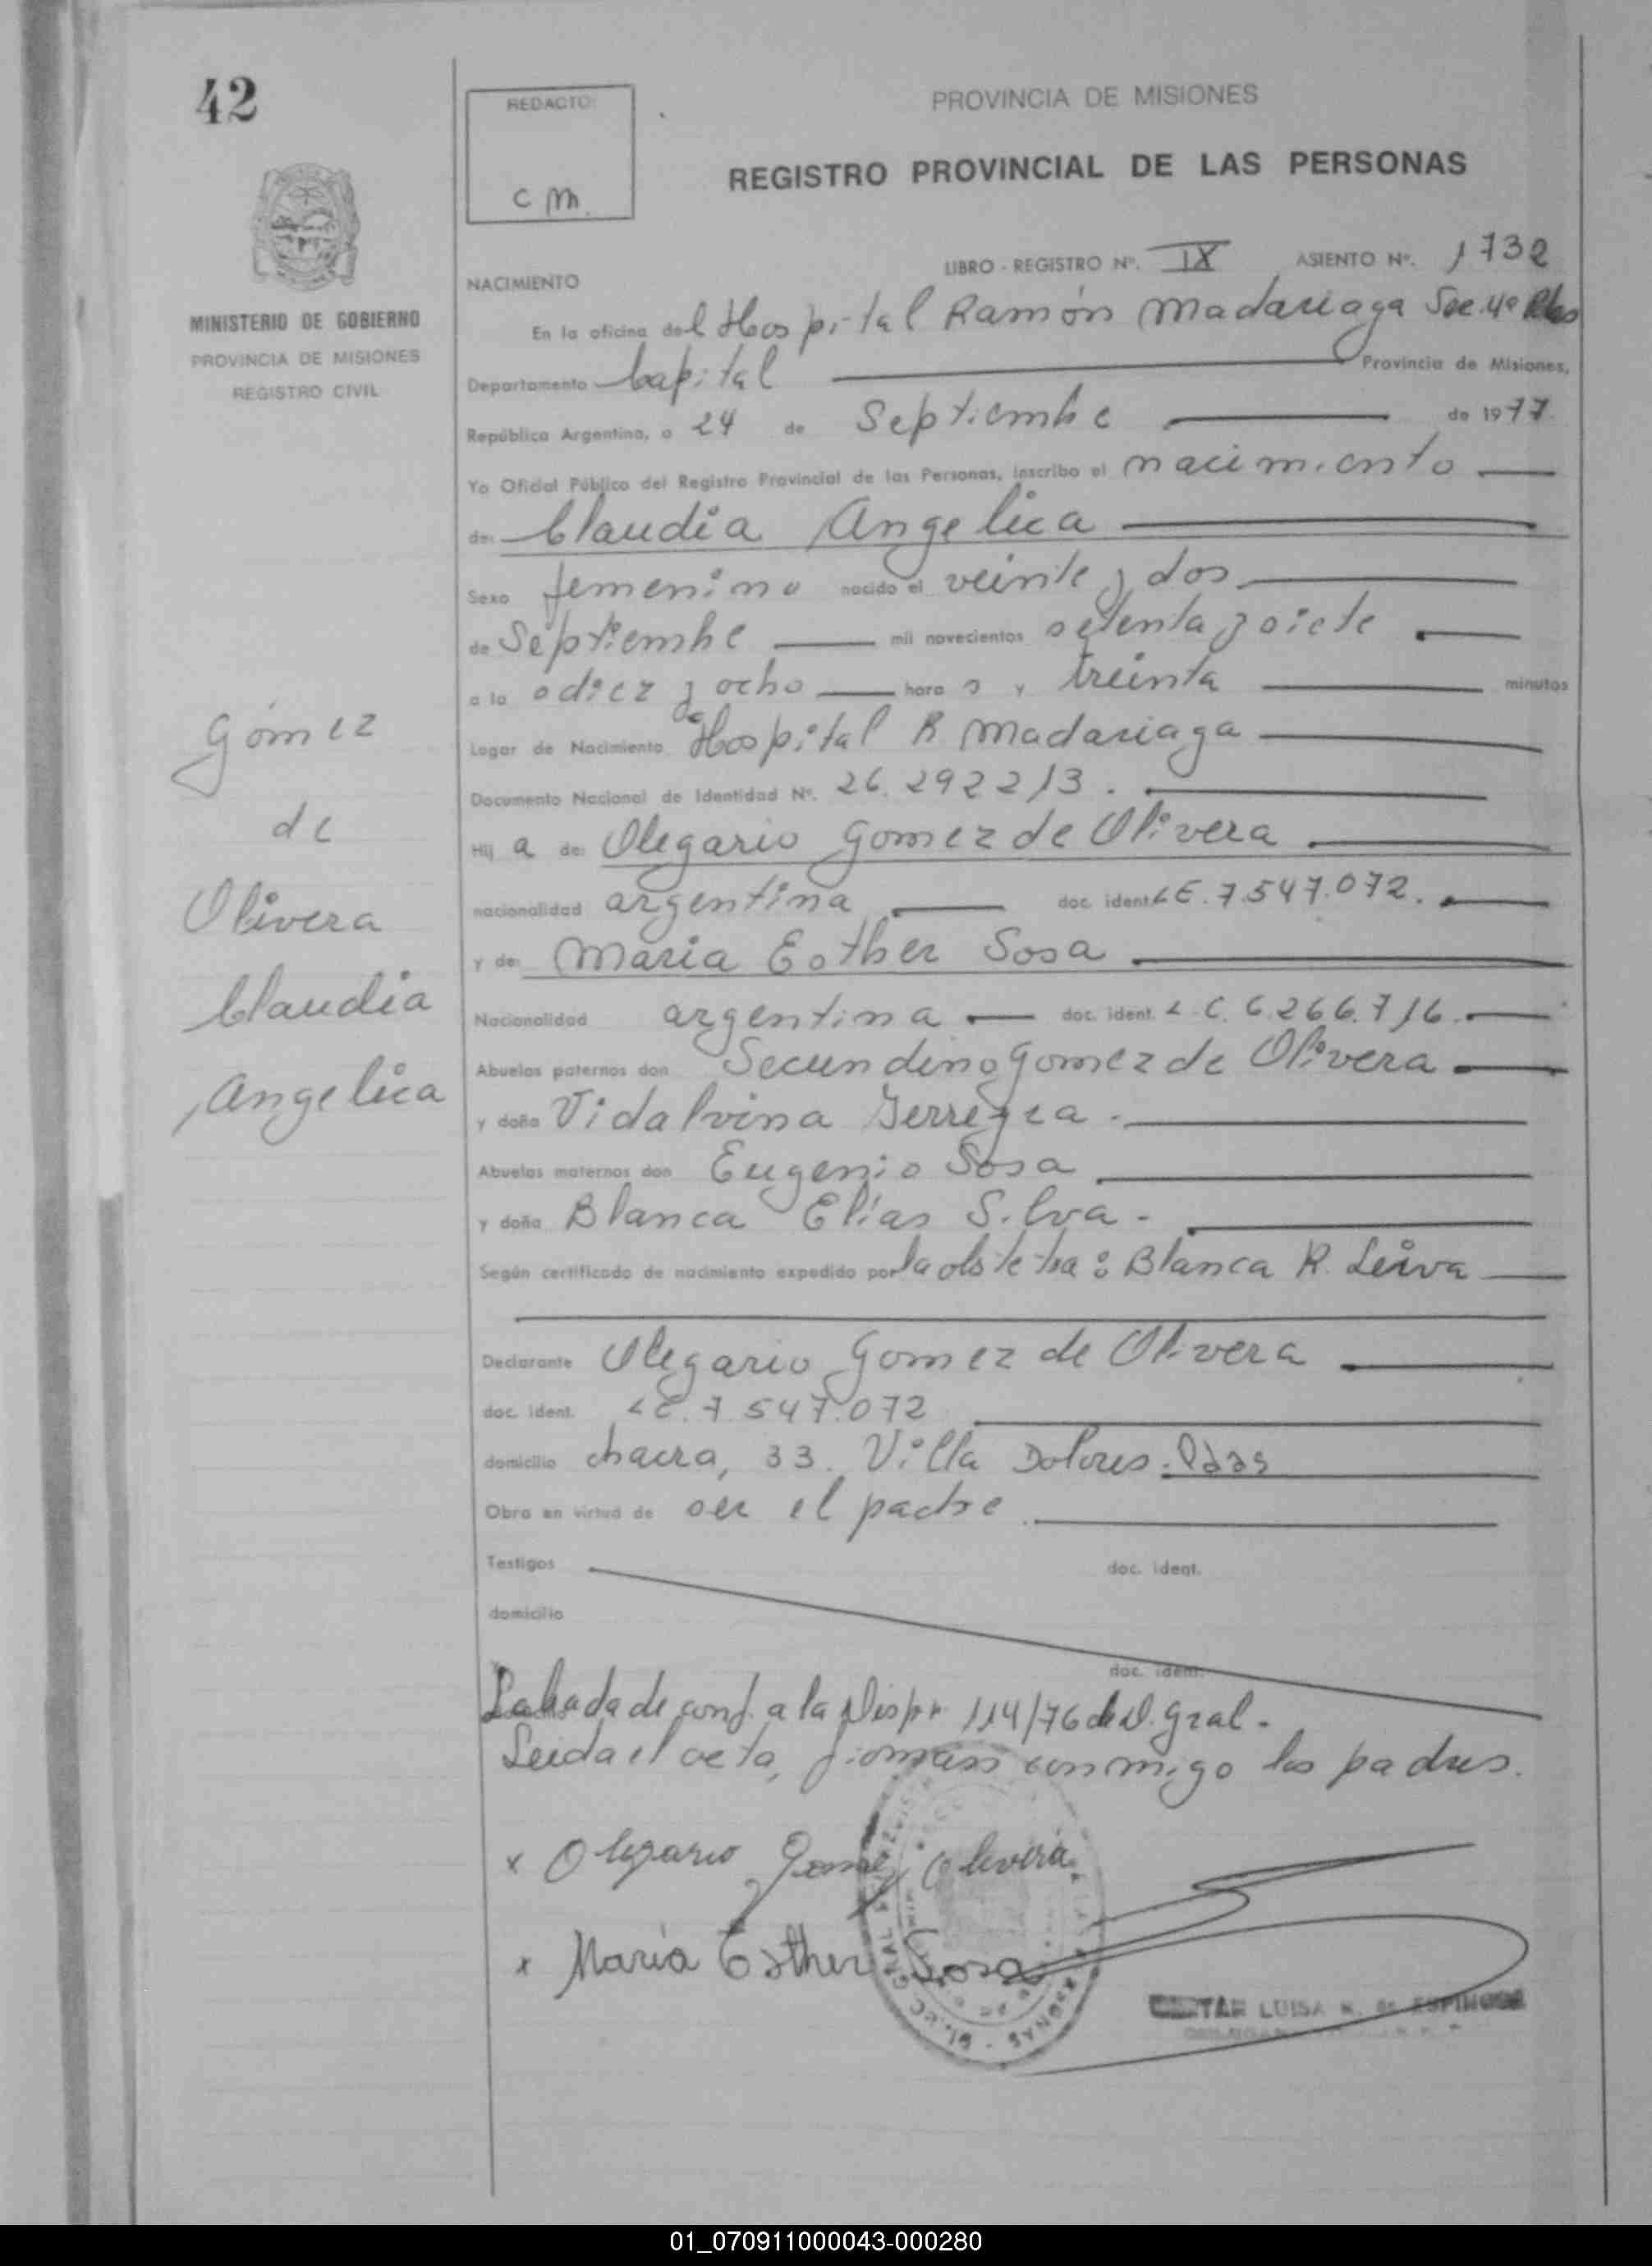 42
REDACTO:
C M.
PROVINCIA DE MISIONES
REGISTRO PROVINCIAL DE LAS PERSONAS
MINISTERIO DE GOBIERNO
PROVINCIA DE MISIONES
REGISTRO CIVIL
LIBRO - REGISTRO Nº. IX ASIENTO Nº. 1732
NACIMIENTO
En la oficina del Hospital Ramón Madariaga Sec. 4ª
Departamento Capital Provincia de Misiones,
República Argentina, a 24 de Septiembre de 1977.
Yo Oficial Público del Registro Provincial de las Personas, inscribo el nacimiento
de: Claudia Angelica
Sexo femenino nacido el veinte y dos
de Septiembre mil novecientos setenta y siete
a la s diez y ocho hora s y treinta minutos
Lugar de Nacimiento Hospital R Madariaga
Documento Nacional de Identidad Nº. 26.292213.
Hij a de: Olegario Gomez de Olivera
nacionalidad argentina doc. ident. L E. 7.547.072.
y de: Maria Esther Sosa
Nacionalidad argentina doc. ident. L.C. 6.266.716.
Abuelos paternos don Secundino Gomez de Olivera
y doña Vidalvina
Abuelos maternos don Eugenio Sosa
y doña Blanca Elias Silva.
Según certificado de nacimiento expedido por la obstetra: Blanca R. Leiva
Declarante Olegario Gomez de Olivera
doc. ident. L E. 7.547.072
domicilio chacra, 33. Villa Dolores. Pdas
Obra en virtud de ser el padre
Testigos doc. ident.
domicilio
doc. ident.
Labrada de conf. a la Disp. 114/76 de D. Gral.
Leida el acta, firman conmigo los padres.
x Olegario Gomez Olivera
x María Esther Sosa
LUISA N. de ESPINOSA
Gómez
de
Olivera
Claudia
Angelica
01_070911000043-000280